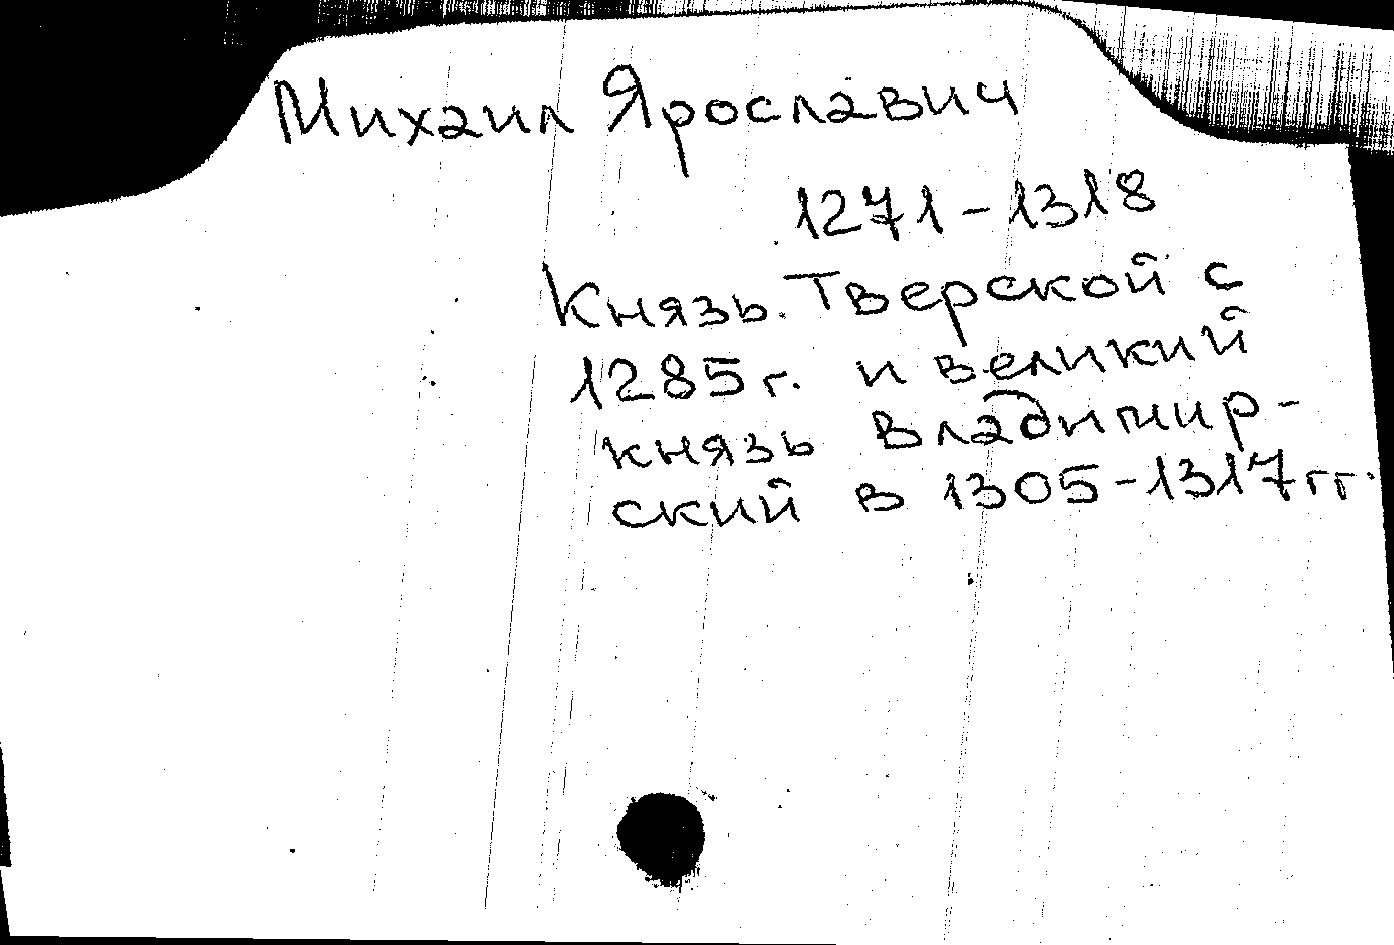 Михаил Ярославич
1271-1318
Князь Тверской с
1285г. и великий
князь Владимир-
ский в 1305-1317гг.